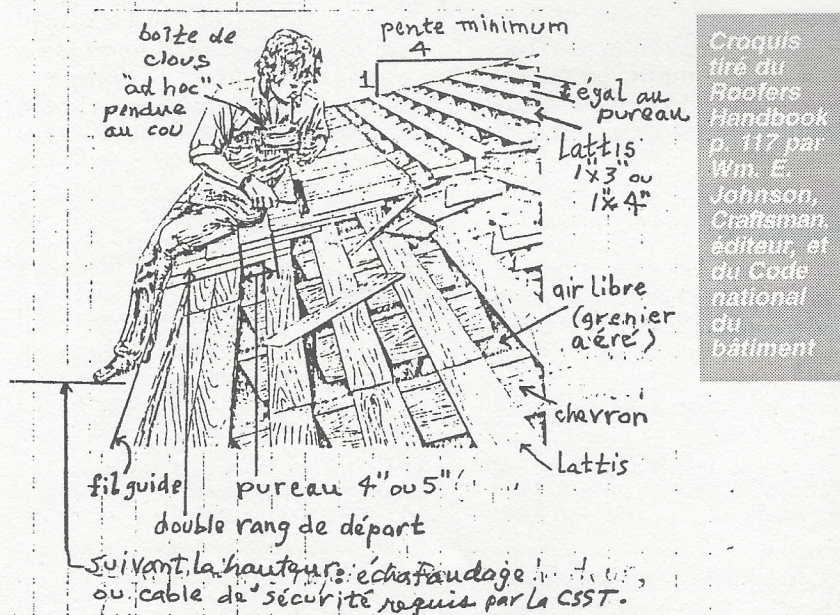 boîte de
clous
"ad hoc"
pendue
au cou
pente minimum
4
1
égal au
pureau
Lattis
1"x3" ou
1"x4"
air libre
(grenier
aéré)
chevron
Lattis
fil guide
pureau 4" ou 5"
double rang de départ
suivant la hauteur: échafaudage
ou cable de sécurité requis par la CSST.
Croquis
tiré du
Roofers
Handbook
p. 117 par
Wm. E.
Johnson,
Craftsman.
éditeur, et
du Code
national
du
bâtiment